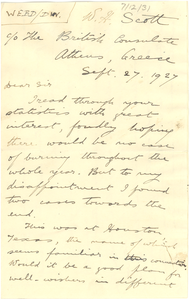 WEBD/DW.
7/12/31
W. R. Scott
c/o The British Consulate
Athens, Greece
Sept. 27, 1927
Dear Sir
I read through your
statistics with great
interest, fondly hoping
there would be no case
of burning throughout the
whole year. But to my
disappointment I found
two cases towards the
end.
This was at Houston
Texas, the name of which
seems familiar in this
Would it be a good plan for
well-wishers in different